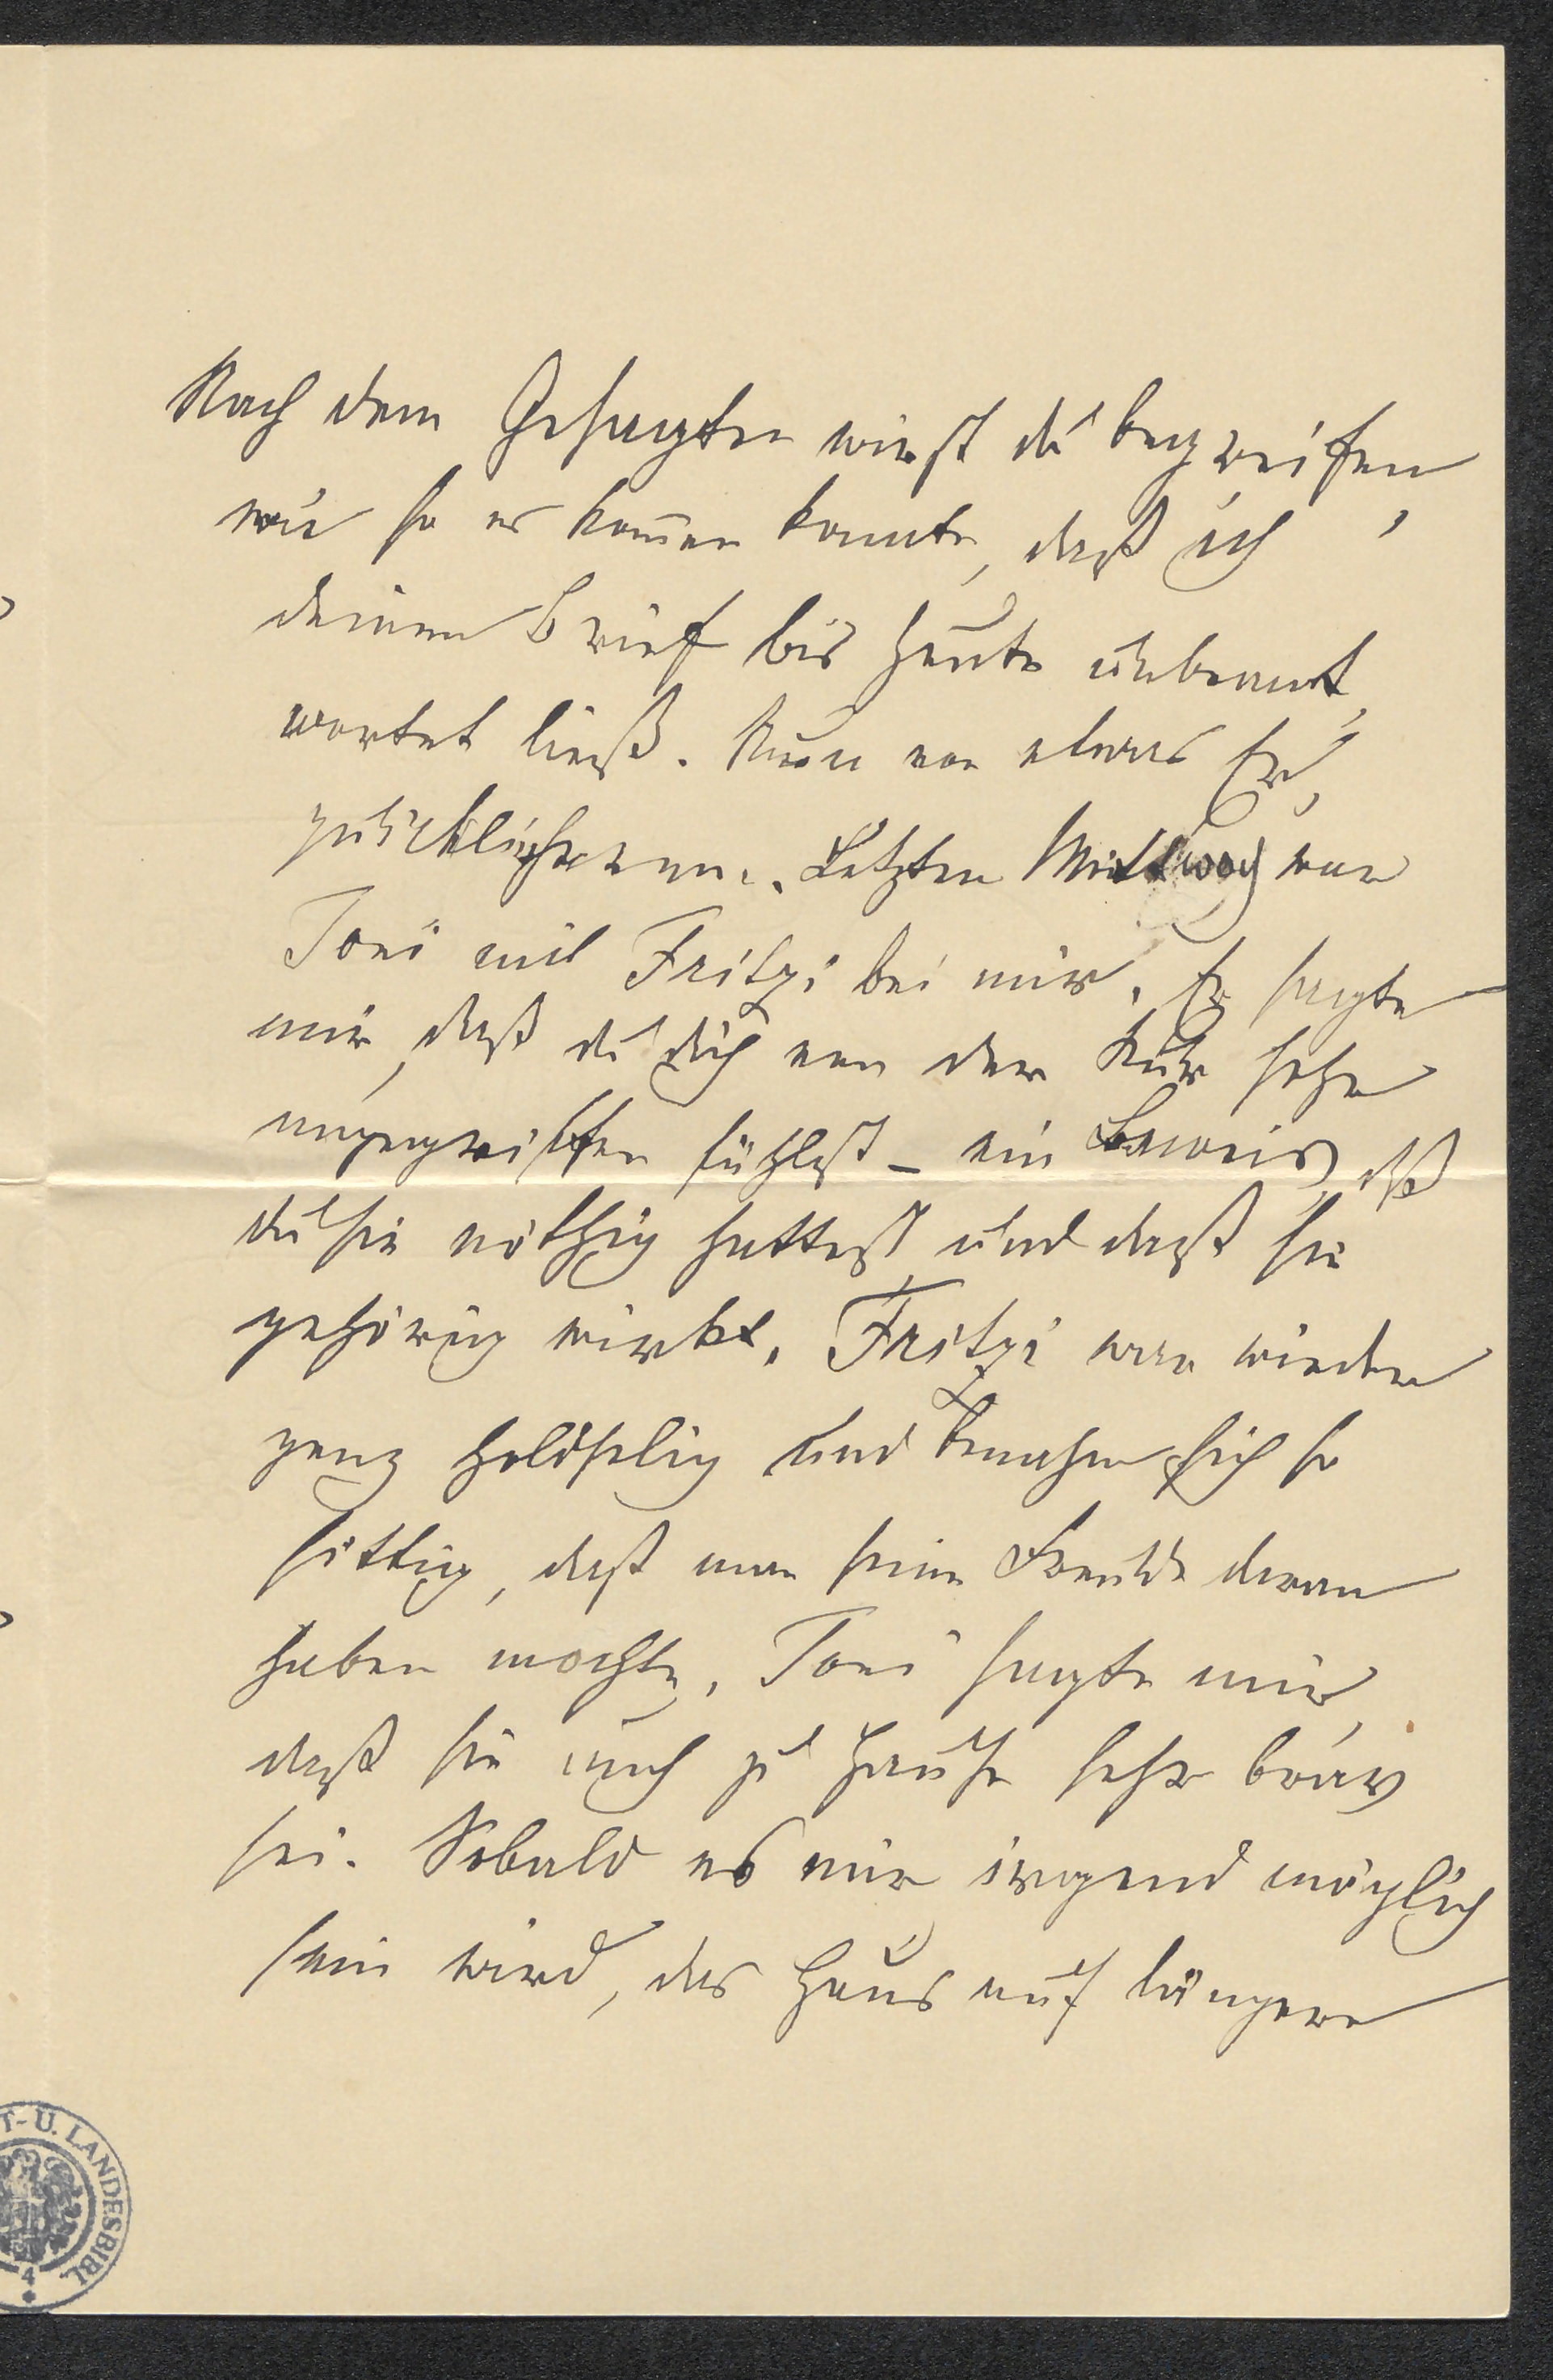 Nach dem Gesagten wirst du begreifen,
wie so es kom̄en konnte, daß ich
deinen Brief bis heute unbeant-
wortet ließ. Nun von etwas Er-
quicklicherem. Letzten Mittwoch war
Toni mit Fritzi bei mir. Er sagte
mir, daß du dich von der Kur sehr
angegriffen fühlest – ein Beweis, dß
du sie nöthig hattest und daß sie
gehörig wirkt. Fritzi war wieder
ganz holdselig und benahm sich so
sittig, daß man seine Freude daran
haben mochte. Toni sagte mir,
daß sie auch zu Hause sehr brav
sei. Sobald es mir irgend möglich
sein wird, das Haus auf längere
T- U. LANDESBIBL.
4